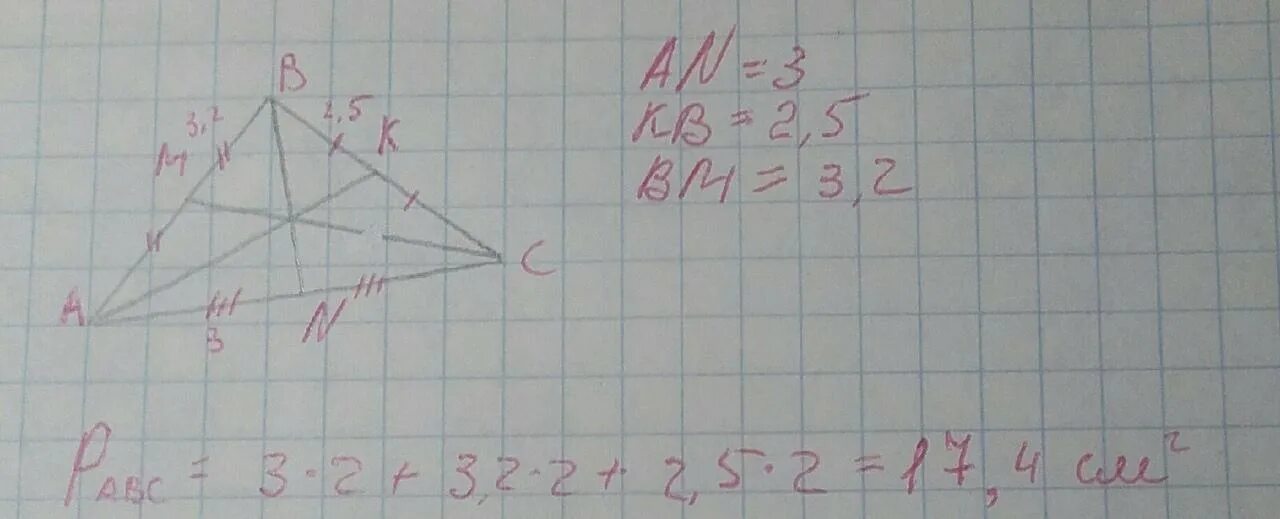 B
3,2
2,5
M
K
A
3
N
C
AN = 3
KB = 2,5
BM = 3,2
P ABC = 3·2 + 3,2·2 + 2,5·2 = 17,4 см²